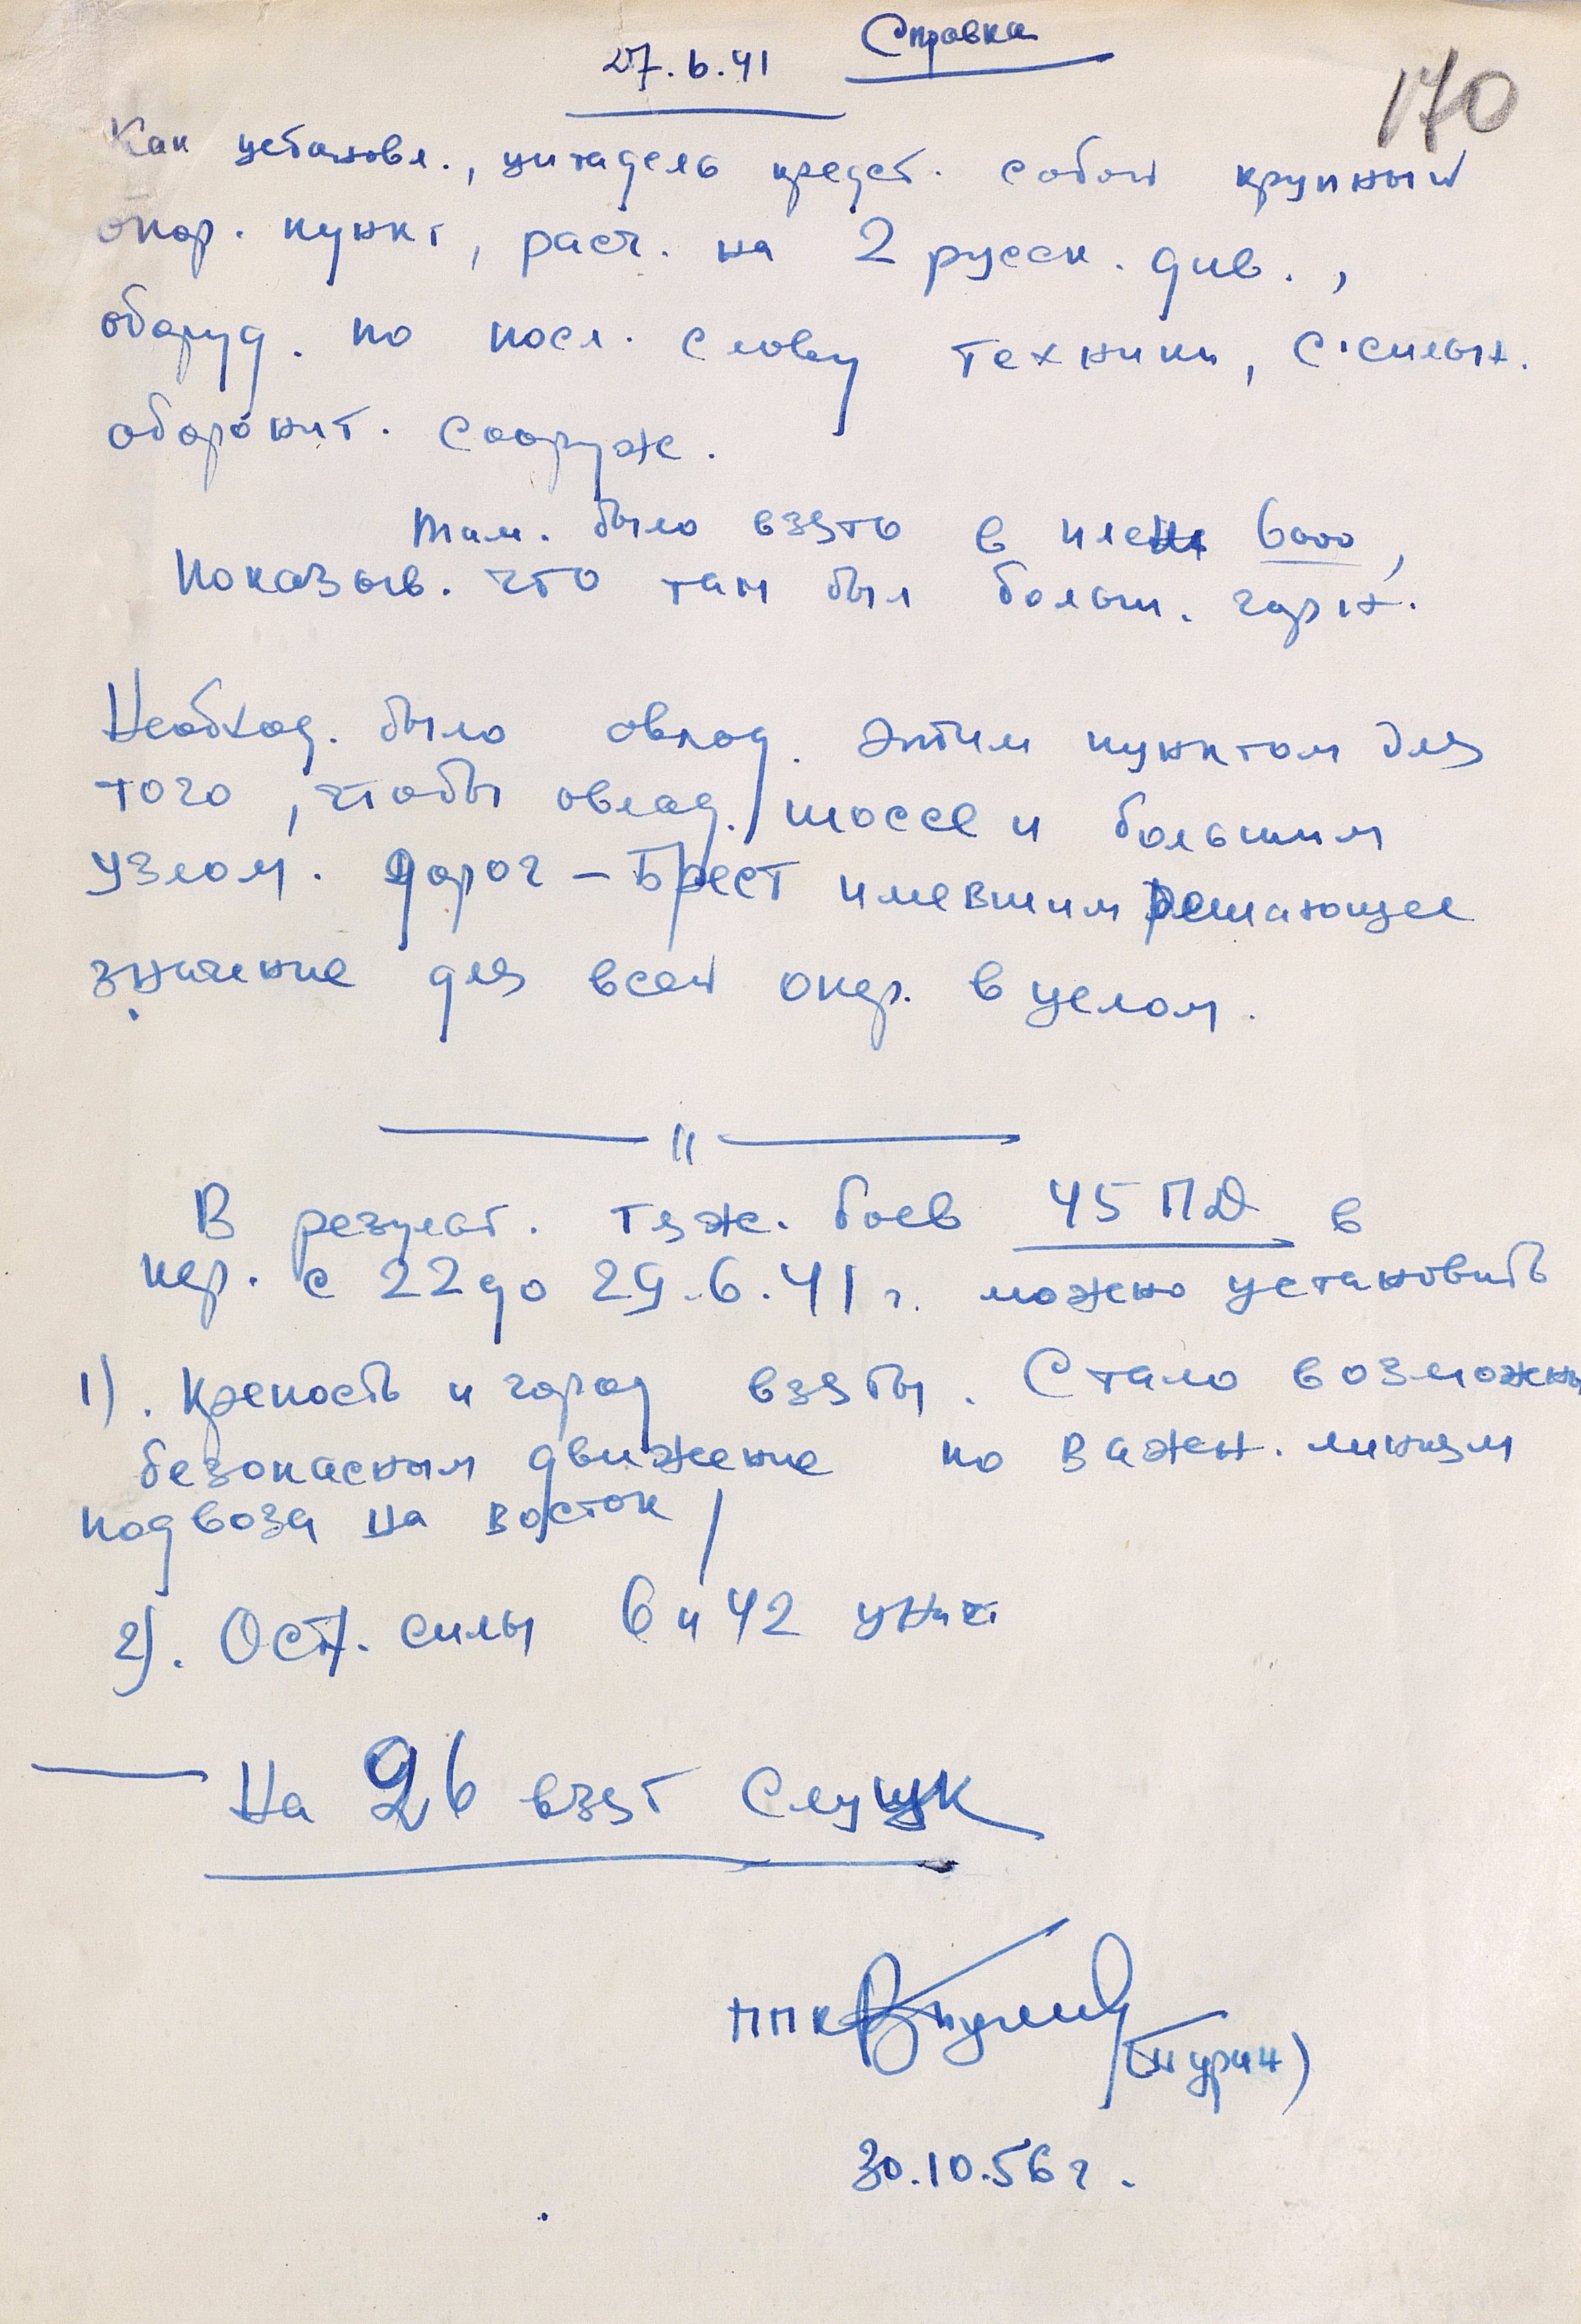 Справка
27.6.41
170
Как установл., цитадель предст. собой крупный
опор. пункт, расч. на 2 русск. див.,
оборуд. по посл. слову техники, с сильн.
оборонит. сооруж.
было взято в плен 6000,
показыв. что там был больш. гарн.
Необход. было овлад. этим пунктом для
того, чтобы овлад. шоссе и большим
узлом. дорог – Брест имевшим решающее
значение для всей опер. в целом.
— " —
В результ. тяж. боев 45 ПД в
пер. с 22 до 29.6.41 г. можно установить
1). Крепость и город взяты. Стало возможн
безопасным движение по важн. линиям
подвоза на восток
2). Ост. силы 6 и 42 уничт
— На 26 взят Слуцк
ппк
30.10.56 г.